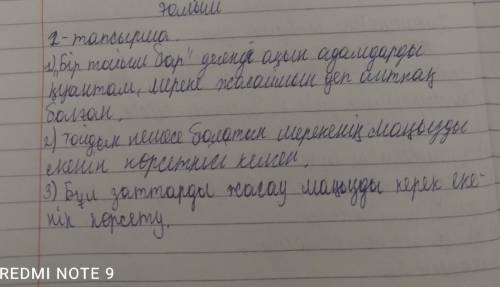 1-тапсырма.
1) "Бір тойым бар" дегенде ақын адамдарды
қуантам, мереке жасаймын деп айтпақ
болған.
2) Тойдың немесе болатын мерекенің маңызды
екенін көрсеткісі келген.
3) Бұл заттарды жасау маңызды керек еке-
нін көрсету.
REDMI NOTE 9